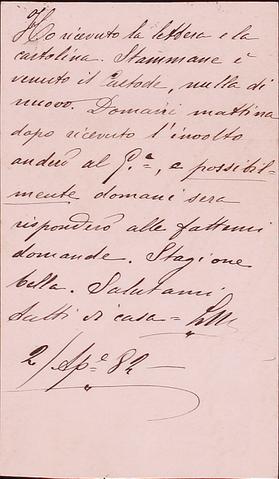 Ho ricevuto la lettera e la
cartolina. Stammane è
venuto il Custode, nulla di
nuovo. Domani mattina
dopo ricevuto l'involto
anderò al G.ª, e possibil-
mente domani sera
risponderò alle fattemi
domande. Stagione
bella. Salutami
tutti di casa =
2/Ap.e 82 —